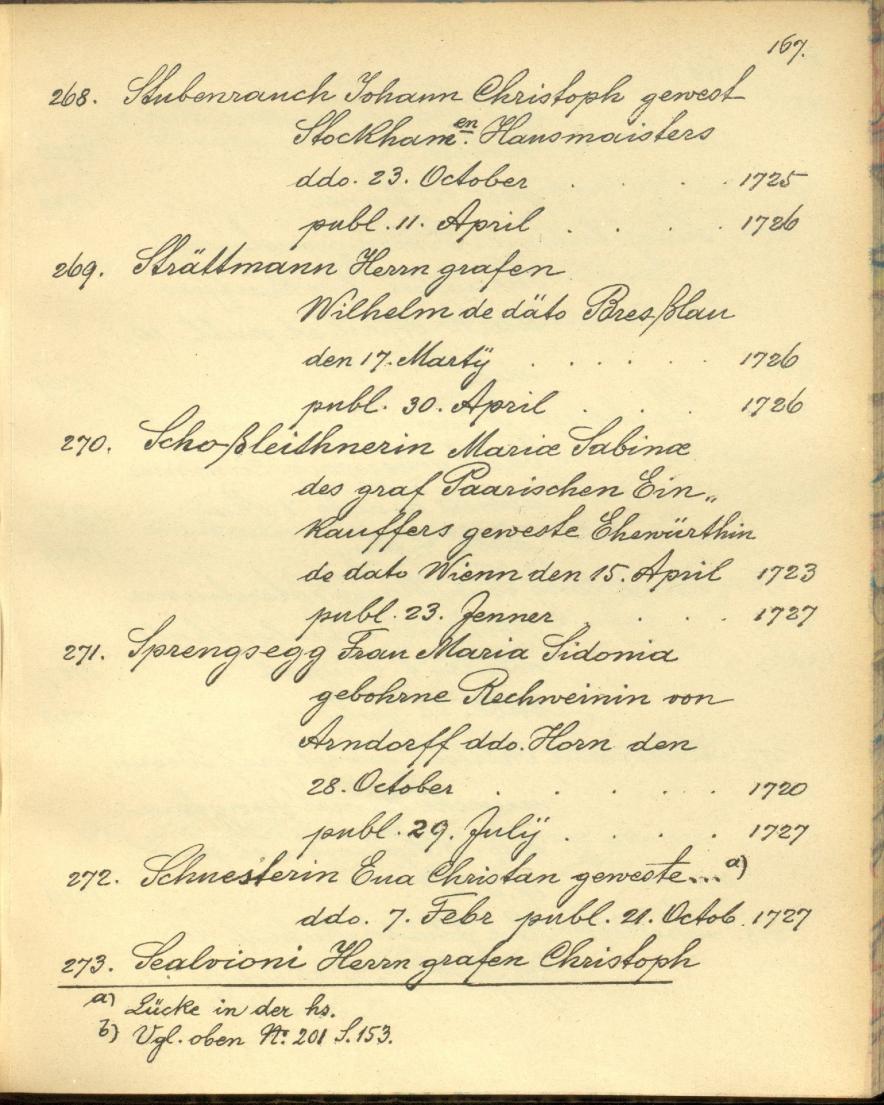 167.
268. Stubenrauch Johann Christoph gewest
Stockhamen. Hausmaisters
ddo. 23. October . . . . 1725
publ. 11. April . . . . 1726
269. Strättmann Herrn grafen
Wilhelm de däto Bresßlau
den 17. Martÿ . . . . . 1726
publ. 30. April . . . 1726
270. Schoßleithnerin Mariæ Sabinæ
des graf Paarischen Ein„
kauffers geweste Ehewürthin
de dato Wienn den 15. April 1723
publ. 23. Jenner . . . . 1727
271. Sprengsegg Frau Maria Sidonia
gebohrne Rechweinin von
Arndorff ddo. Horn den
28. October . . . . . . 1720
publ. 29. Julÿ . . . . 1727
272. Schuesterin Eua Christan geweste...a)
ddo. 7. Febr publ. 21. Octob. 1727
273. Sealvioni Herrn grafen Christoph
a) Lücke in der hs.
b) Vgl. oben No. 201 S. 153.